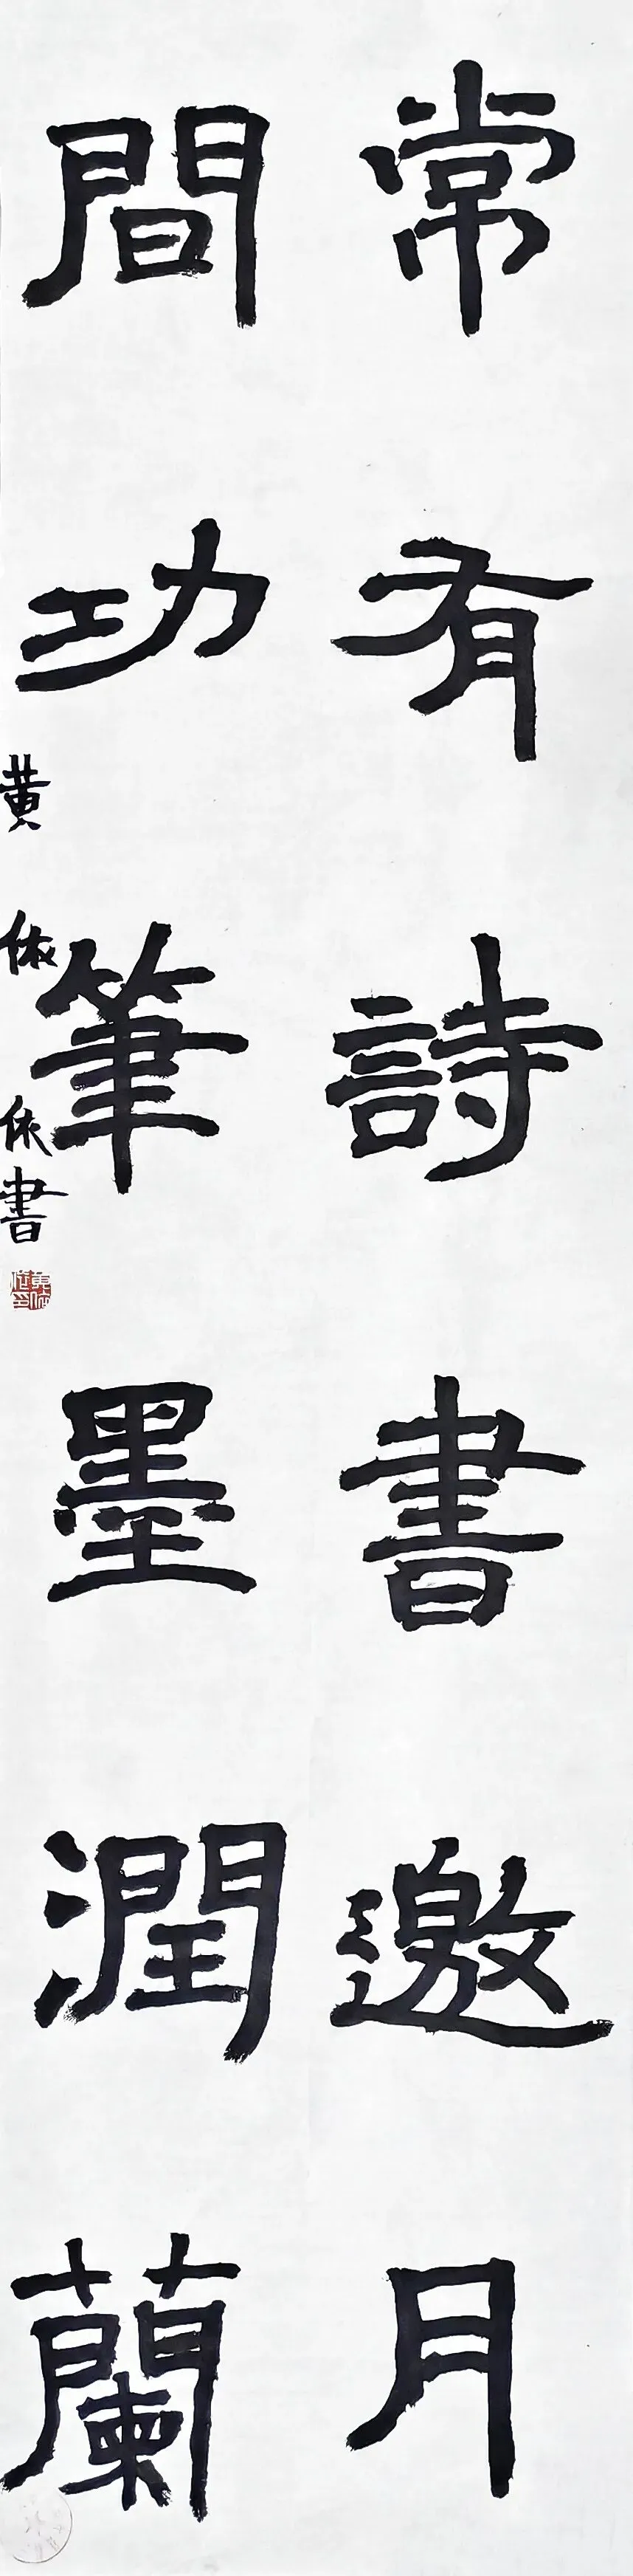 常有詩書邀月
間功筆墨潤蘭
黄依依書